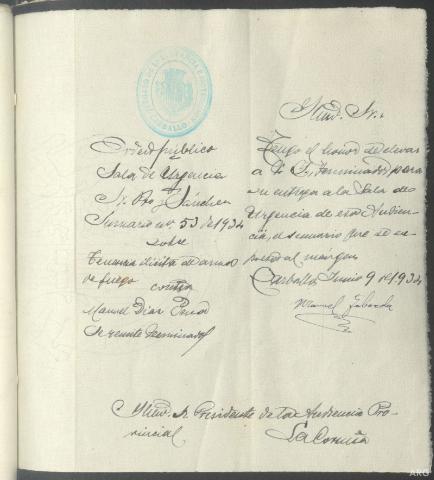 Orden público
Sala de Urgencia
Sumario nº 53 de 1934
sobre
Tenencia ilícita de armas
de fuego contra
Manuel Diaz
Iltmo. Sr.
Tengo el honor de elevar
a V. I. terminado, para
su entrega a la Sala de
Urgencia de esa Audien-
cia, el sumario que se ex-
presa al margen
Carballo Junio 9 de 1934
Manuel Taboada
Iltmo. Sr. Presidente de la Audiencia Pro-
vincial
La Coruña
ARG